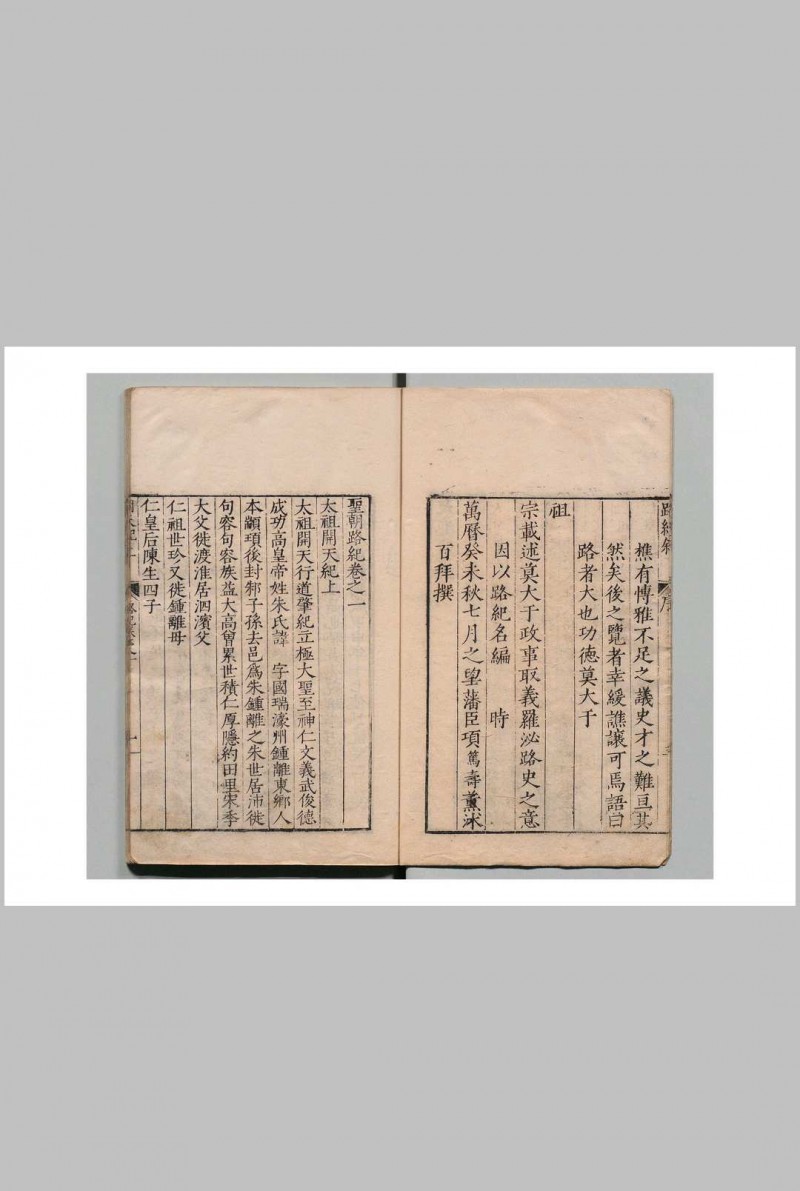 樵有慱雅不足之議史才之難亘其
然矣後之覽者幸緩譙讓可焉語曰
路者大也功德莫大于
祖
宗載述莫大于政事取義羅泌路史之意
因以路紀名編　時
萬曆癸未秋七月之望藩臣項篤壽薰沐
百拜撰
聖朝路紀卷之一
太祖開天紀上
太祖開天行道肇紀立極大聖至神仁文義武俊德
成功高皇帝姓朱氏諱　字國瑞濠州鍾離東鄉人
本顓頊後封邾子孫去邑爲朱鍾離之朱世居沛徙
句容句容族益大高曾累世積仁厚隱約田里宋季
大父徙渡淮居泗濱父
仁祖世珍又徙鍾離母
仁皇后陳生四子